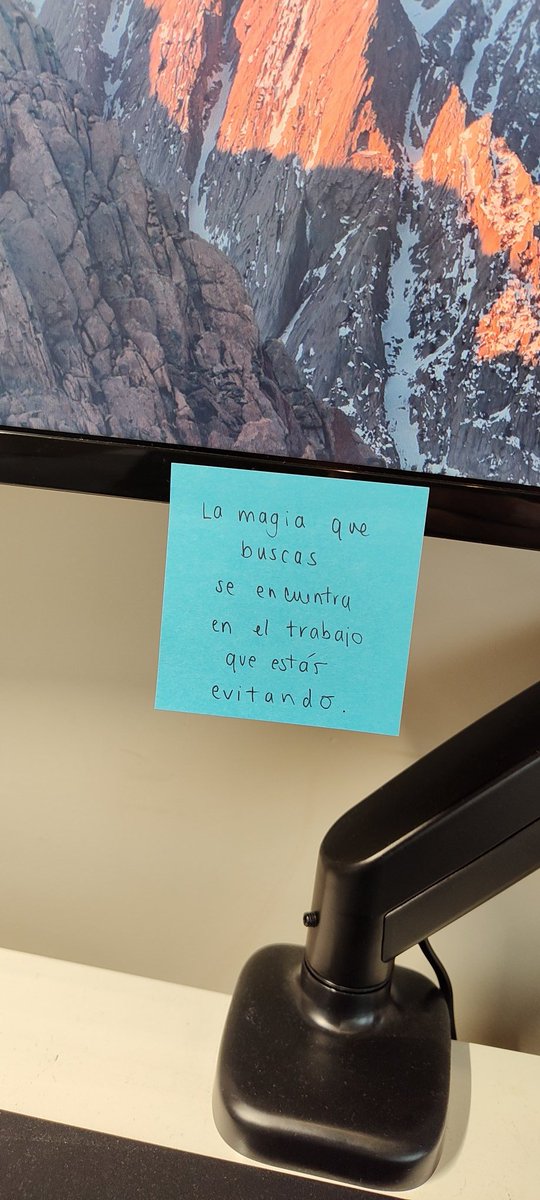 La magia que
buscas
se encuentra
en el trabajo
que estás
evitando.